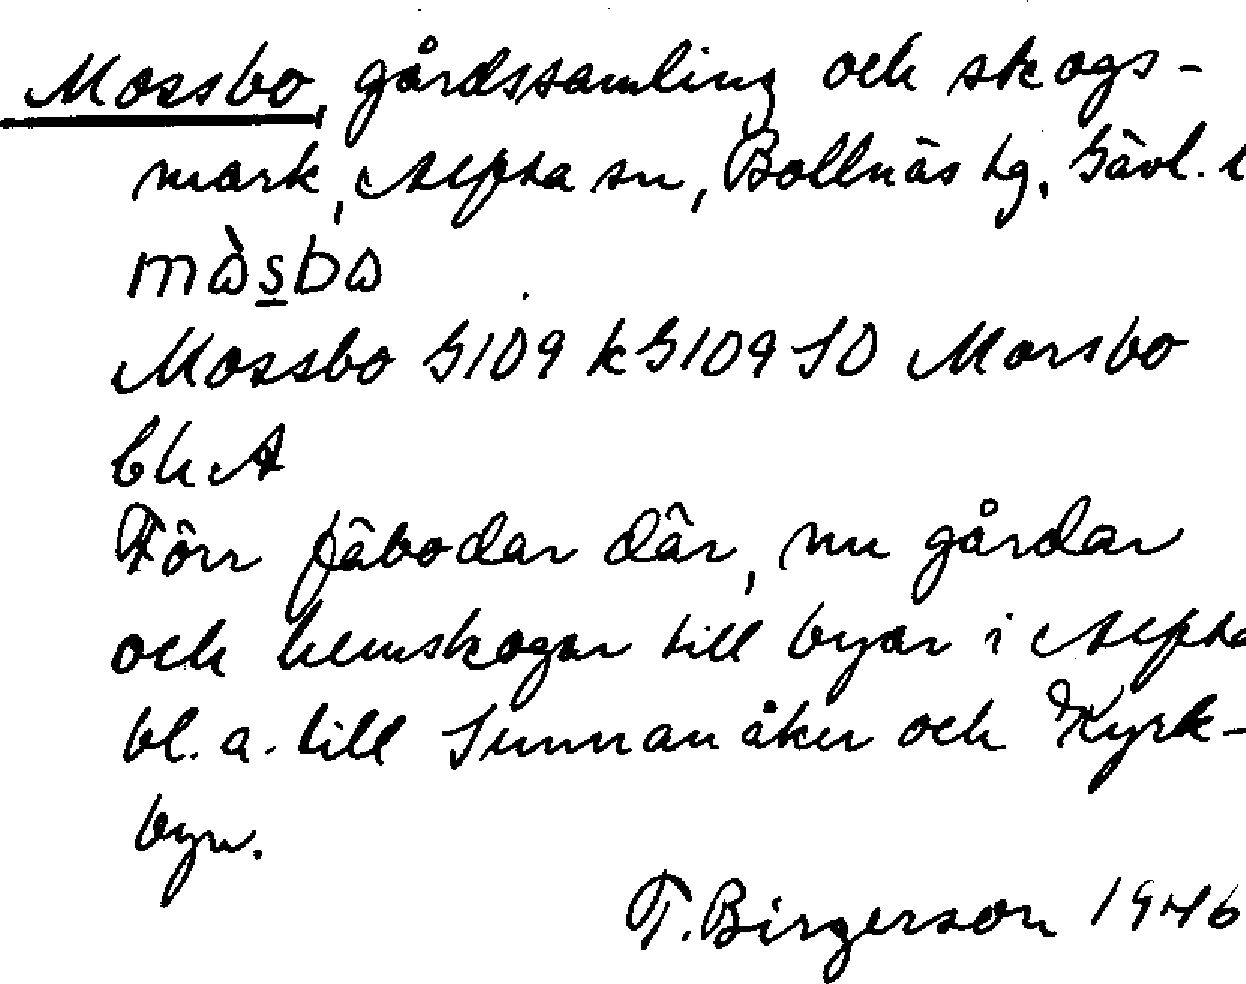 Mossbo, gårdssamling och skogs-
mark, Alfta sn, Bollnäs tg, Gävl. l
mɷ̀sbɷ
Mossbo G109 k G109 SO Morsbo
bl. A
Förr fäbodar där, nu gårdar
och hemskogar till byar i Alfta
bl. a. till Sunnanåker och Kyrk-
byn.
T. Birgerson 1946